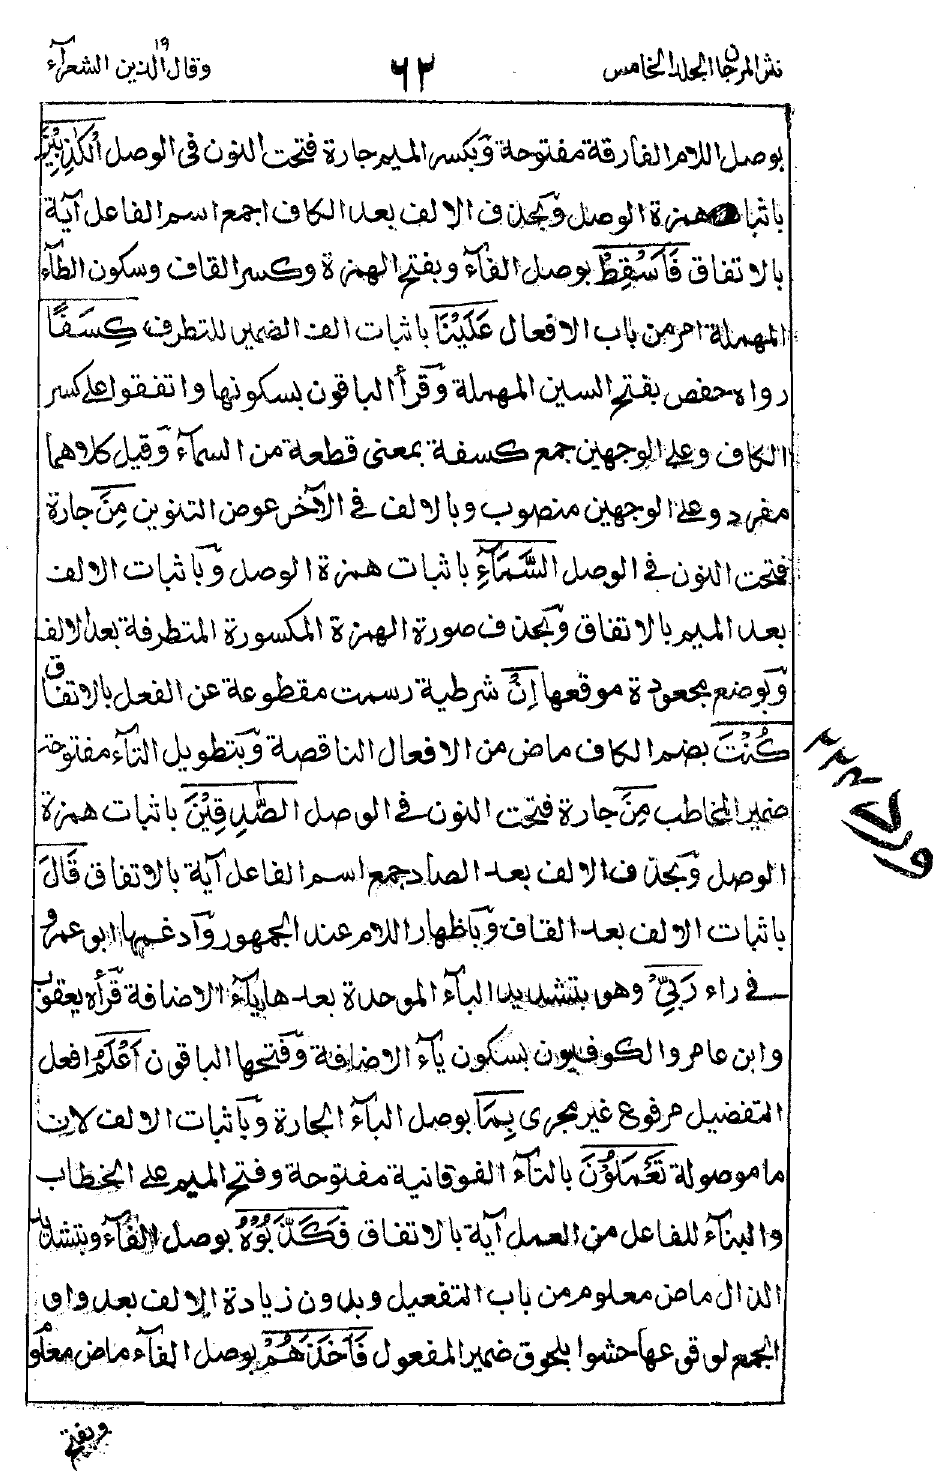 نثر المرجان الجلد الخامس ٦٢ وقال الذين ١٩ الشعرآء
بوصل اللام الفارقة مفتوحة وَبكسر الميم جارة فتحت النون فى الوصل الْكٰذِبِيْنَ
باثبات همزة الوصل وَبحذف الالف بعد الكاف اجمع اسم الفاعل آية
بالاتفاق فَاَسْقِطْ بوصل الفآء وبفتح الهمزة وكسر القاف وسكون الطآء
المهملة امر من باب الافعال عَلَيْنَا باثبات الف الضمير للتطرف كِسَفًا
رواه حفص بفتح السين المهملة وَقرأ الباقون بسكونها واتفقوا على كسر
الكاف وعلى الوجهين جمع كسفة بمعنى قطعة من السمآء وَقيل كلاهما
مفرد وعلى الوجهين منصوب وبالالف فى الآخر عوض التنوين مِنَ جارة
فتحت النون فى الوصل السَّمَآءِ باثبات همزة الوصل وَباثبات الالف
بعد الميم بالاتفاق وَبحذف صورة الهمزة المكسورة المتطرفة بعد الالف
وَبوضع مجعودة موقعها اِنْ شرطية رسمت مقطوعة عن الفعل بالاتفاق
كُنْتَ بضم الكاف ماض من الافعال الناقصة وَبتطويل التآء مفتوحة
ضمير المخاطب مِنَ جارة فتحت النون فى الوصل الصّٰدِقِيْنَ باثبات همزة
الوصل وَبحذف الالف بعد الصاد جمع اسم الفاعل آية بالاتفاق قَالَ
باثبات الالف بعد القاف وَباظهار اللام عند الجمهور وَادغمها ابو عمرو
فى راء رَبِّيْ وهو بتشديد البآء الموحدة بعدها يآء الاضافة قَرأه يعقوب
وابن عامر والكوفيون بسكون يآء الاضافة وَفتحها الباقون اَعْلَمُ افعل
التفضيل مرفوع غير مجرى بِمَا بوصل البآء الجارة وَباثبات الالف لان
ما موصولة تَعْمَلُوْنَ بالتآء الفوقانية مفتوحة وفتح الميم على الخطاب
والبنآء للفاعل من العمل آية بالاتفاق فَكَذَّبُوْهُ بوصل الفآء وبتشديد
الذال ماض معلوم من باب التفعيل وبدون زيادة الالف بعد واو
الجمع لوقوعها حشوا بلحوق ضمير المفعول فَاَخَذَهُمْ بوصل الفآء ماض معلوم
وبفتح